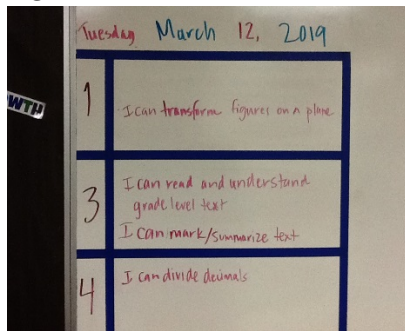 Tuesday March 12, 2019
WTH
1
I can transform figures on a plane
3
I can read and understand
grade level text
I can mark/summarize text
4
I can divide decimals